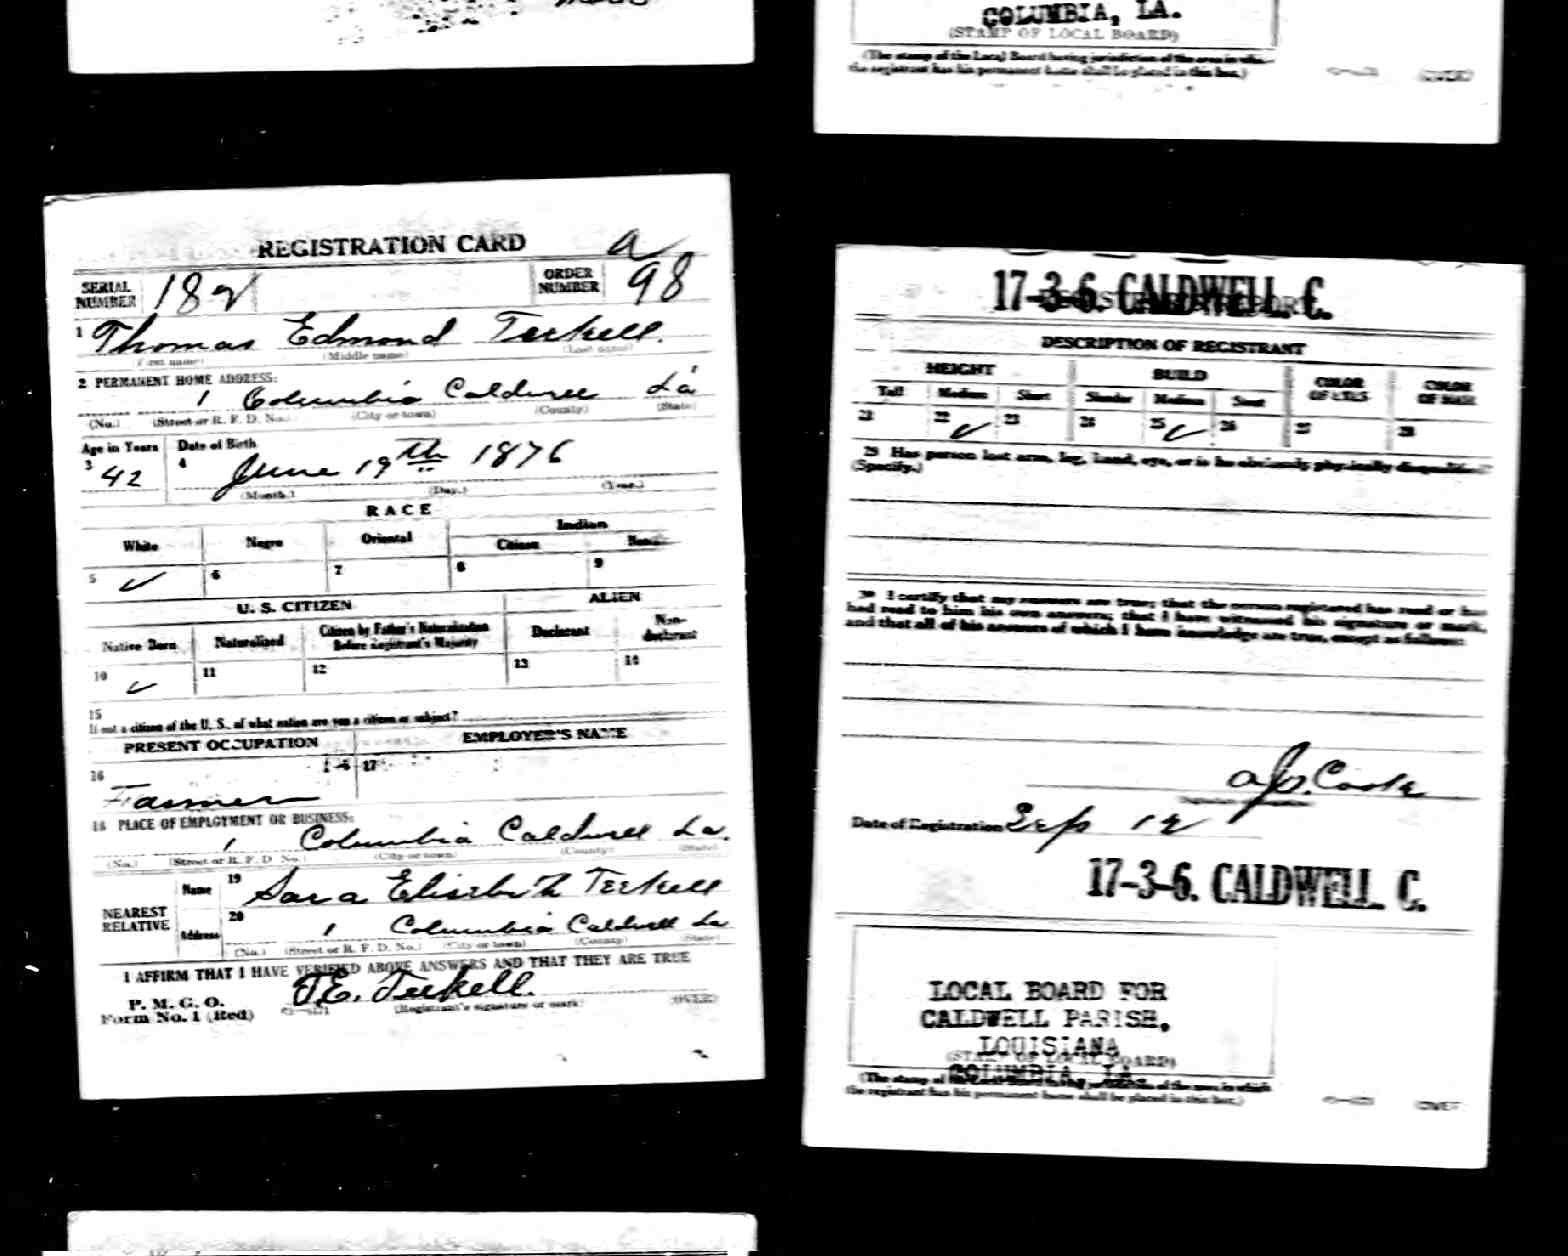 COLUMBIA, LA.
(STAMP OF LOCAL BOARD)
(The stamp of the Local Board having jurisdiction of the area in which
the registrant has his permanent home shall be placed in this box.)
(OVER)
REGISTRATION CARD
SERIAL NUMBER 182
ORDER NUMBER 98
1 Thomas Edmond Terkell.
(First name) (Middle name) (Last name)
2 PERMANENT HOME ADDRESS:
1 Columbia Caldwell La
(No.) (Street or R. F. D. No.) (City or town) (County) (State)
Age in Years Date of Birth
3 42 4 June 19th 1876
(Month.) (Day.) (Year.)
RACE
White Negro Oriental Indian
Citizen
5 ✓ 6 7 8 9
U. S. CITIZEN ALIEN
Native Born Naturalized Citizen by Father's Naturalization Before Registrant's Majority Declarant Non-declarant
10 ✓ 11 12 13 14
15
If not a citizen of the U. S., of what nation are you a citizen or subject?
PRESENT OCCUPATION EMPLOYER'S NAME
16 17
Farmer
18 PLACE OF EMPLOYMENT OR BUSINESS:
1 Columbia Caldwell La.
(No.) (Street or R. F. D. No.) (City or town) (County) (State)
NEAREST RELATIVE
Name 19 Sara Elisebeth Terkell
Address 20 1 Columbia Caldwell La
(No.) (Street or R. F. D. No.) (City or town) (County) (State)
I AFFIRM THAT I HAVE VERIFIED ABOVE ANSWERS AND THAT THEY ARE TRUE
P. M. G. O.
Form No. 1 (Red)
T.E. Terkell.
(Registrant's signature or mark)
(OVER)
17-3-6. CALDWELL. C.
DESCRIPTION OF REGISTRANT
HEIGHT BUILD COLOR OF EYES COLOR OF HAIR
Tall Medium Short Slender Medium Stout
21 22 ✓ 23 24 25 ✓ 26 27 28
29 Has person lost arm, leg, hand, eye, or is he obviously physically disqualified?
(Specify.)
30 I certify that my answers are true; that the person registered has read or has
had read to him his own answers; that I have witnessed his signature or mark,
and that all of his answers of which I have knowledge are true, except as follows:
Date of Registration Sep 12
17-3-6. CALDWELL. C.
LOCAL BOARD FOR
CALDWELL PARISH,
LOUISIANA
(STAMP OF LOCAL BOARD)
COLUMBIA, LA.
(The stamp of the Local Board having jurisdiction of the area in which
the registrant has his permanent home shall be placed in this box.)
(OVER)